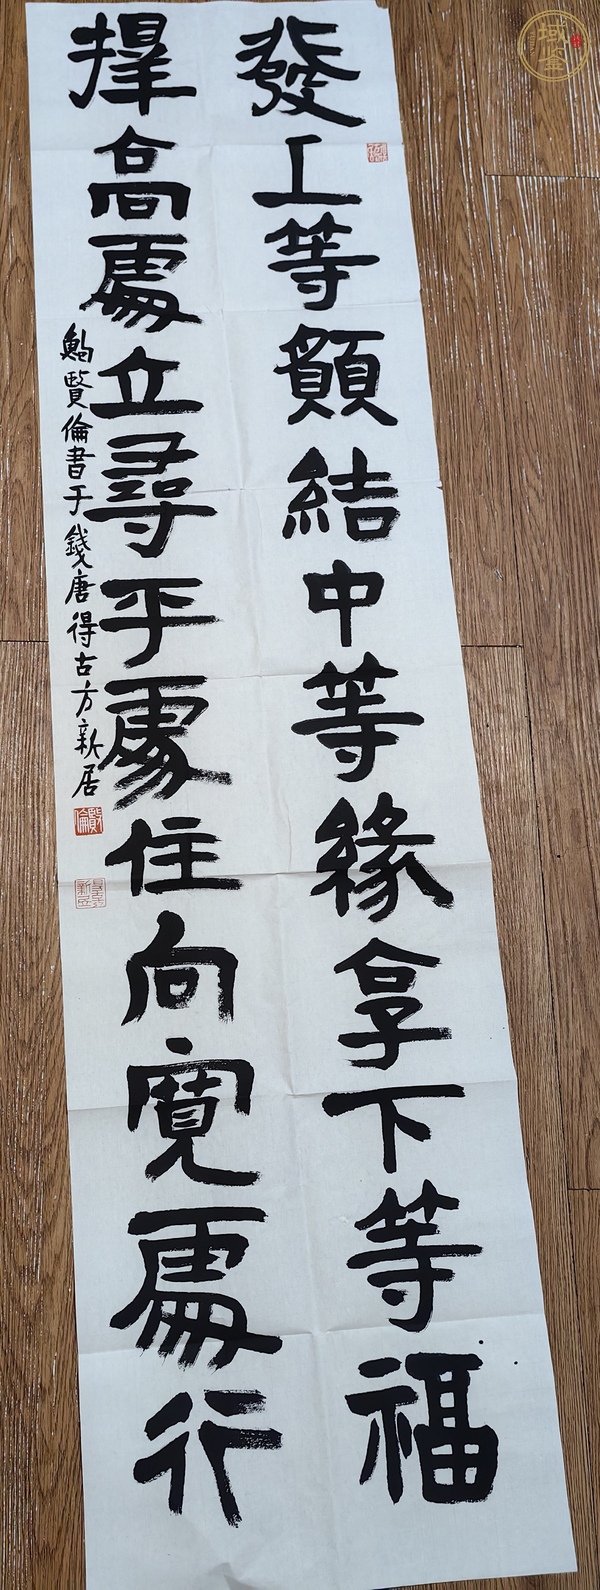 發上等願結中等緣享下等福
擇高處立尋平處住向寬處行
鮑賢倫書于錢唐得古方新居
賢倫